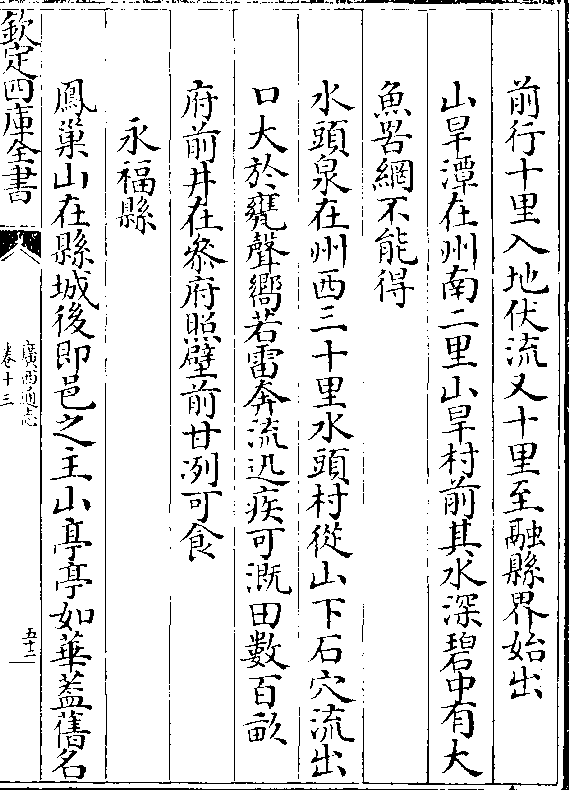 前行十里入地伏流又十里至融縣界始出
山旱潭在州南二里山旱村前其水深碧中有大
魚罟網不能得
水頭泉在州西三十里水頭村從山下石穴流出
口大於甕聲嚮若雷奔流迅疾可溉田數百畝
府前井在叅府照壁前甘冽可食
永福縣
鳳巢山在縣城後即邑之主山亭亭如華葢舊名
欽定四庫全書
廣西通志
卷十三
五十二